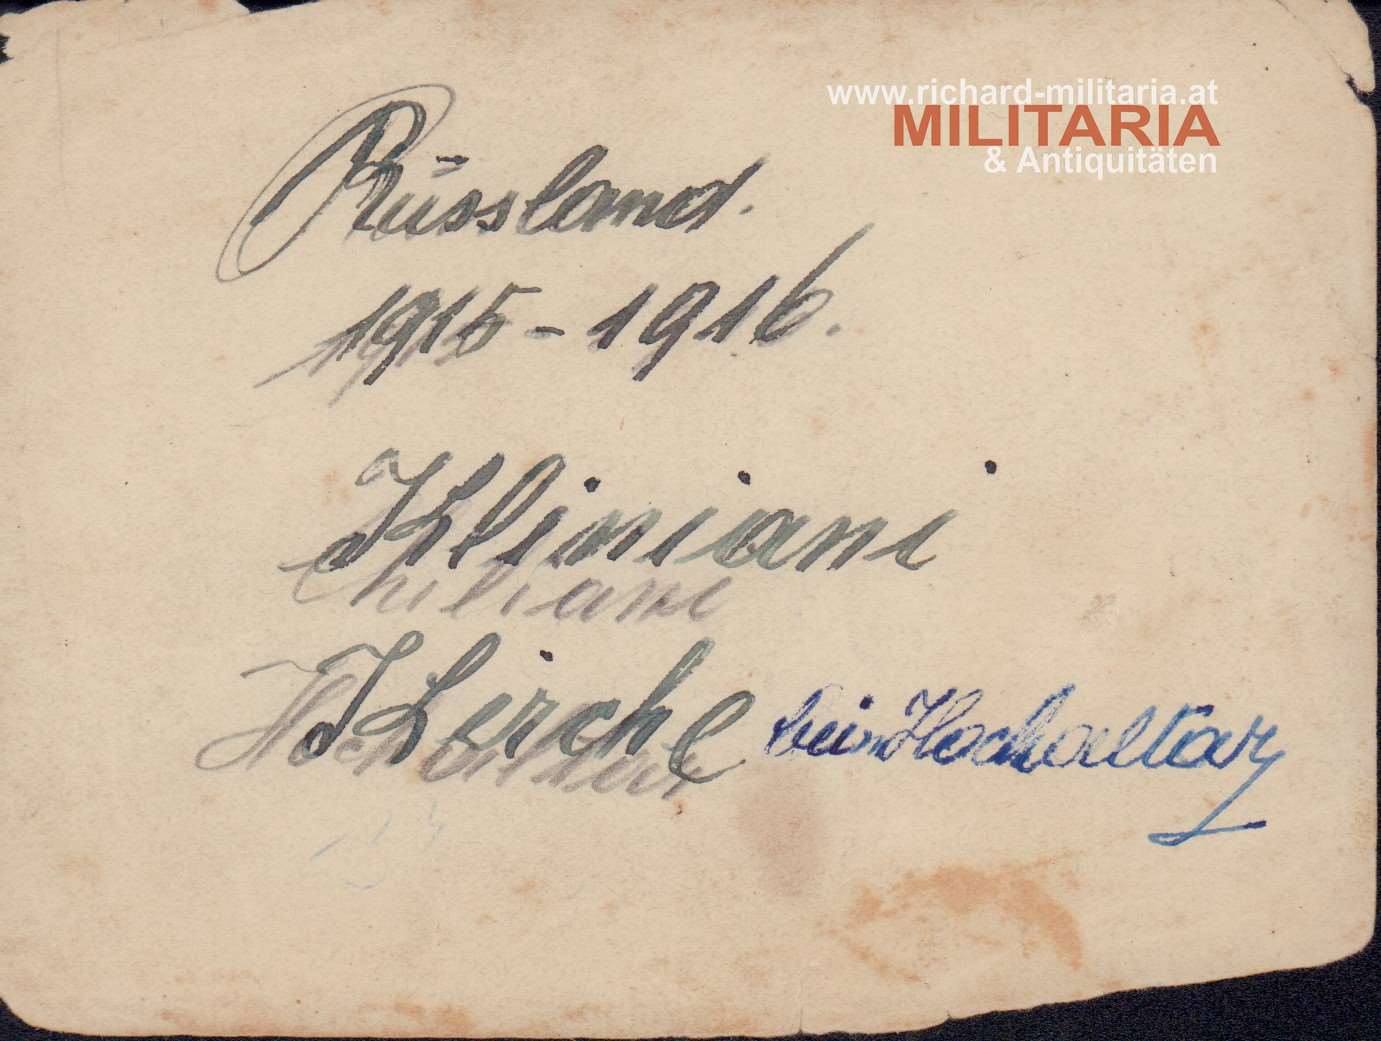 www.richard-militaria.at
MILITARIA
& Antiquitäten
Rüssland.
1915-1916.
Kliniani
Chiliani
Kirche bein Hochaltar
Hochaltar